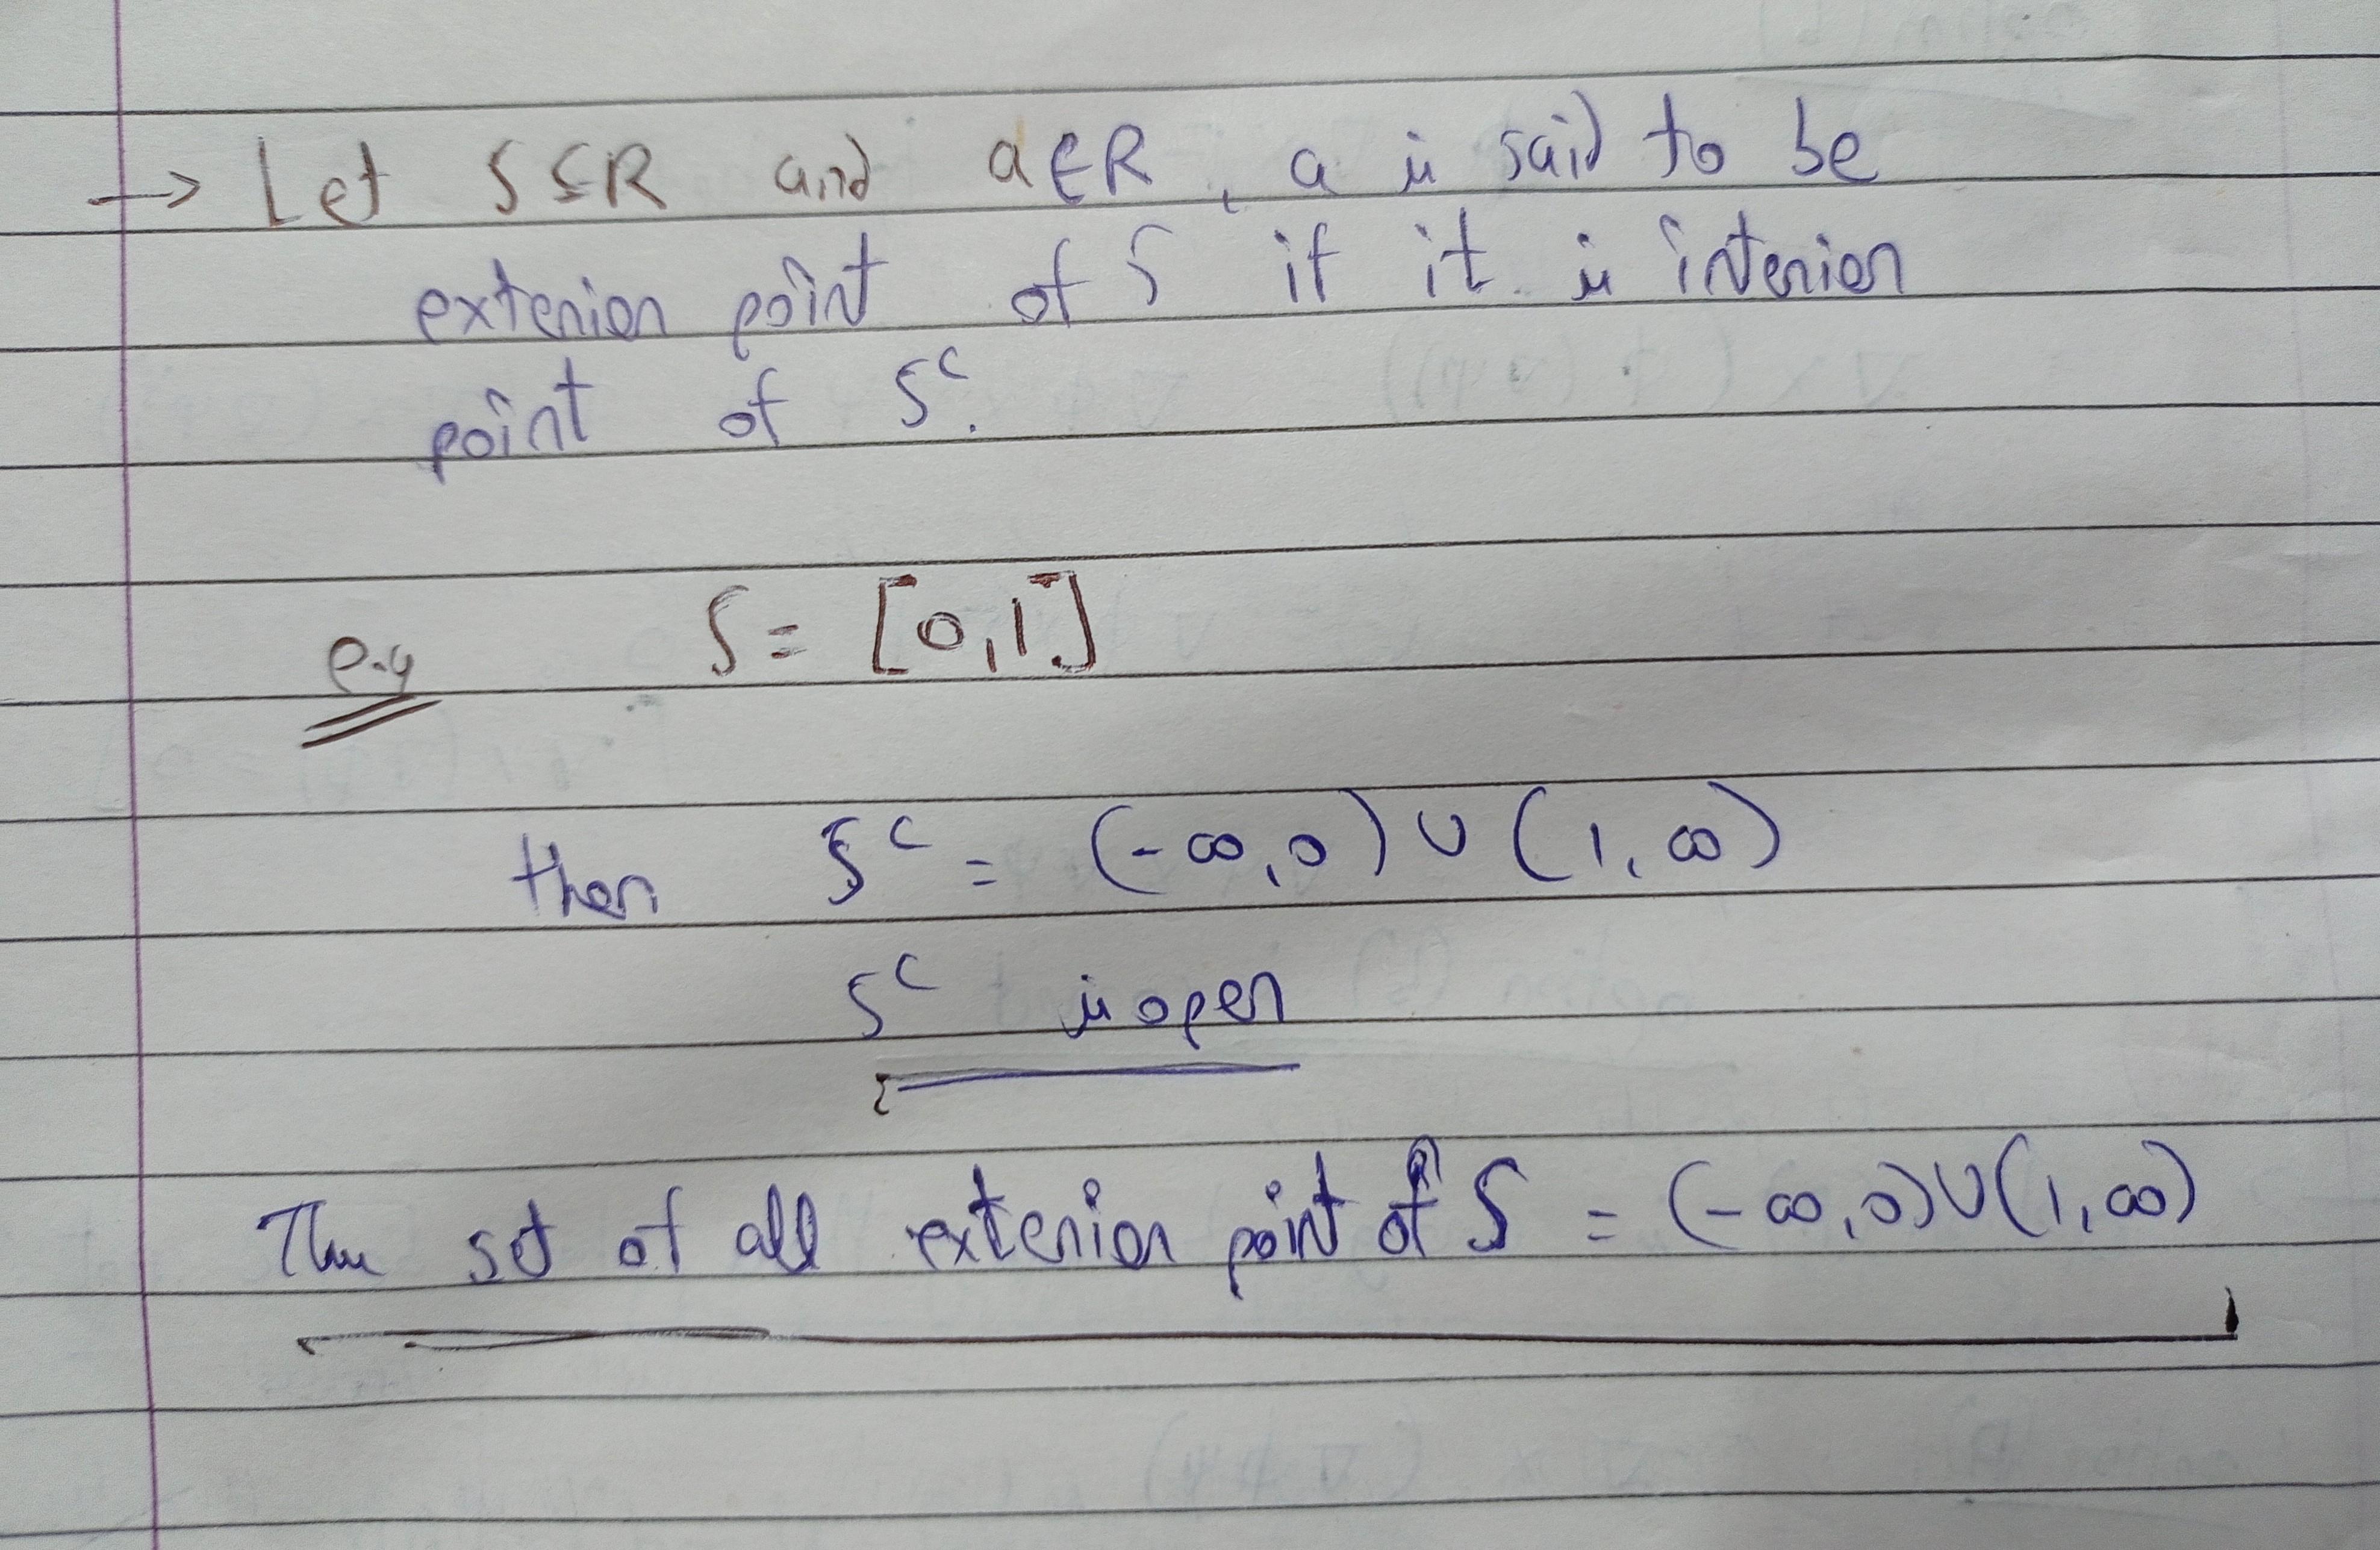 → Let S ⊆ R and a ∈ R, a is said to be
exterior point of S if it is interior
point of Sᶜ.
e.g S = [0,1]
then Sᶜ = (-∞,0) ∪ (1,∞)
Sᶜ is open
Thus set of all exterior point of S = (-∞,0)∪(1,∞)